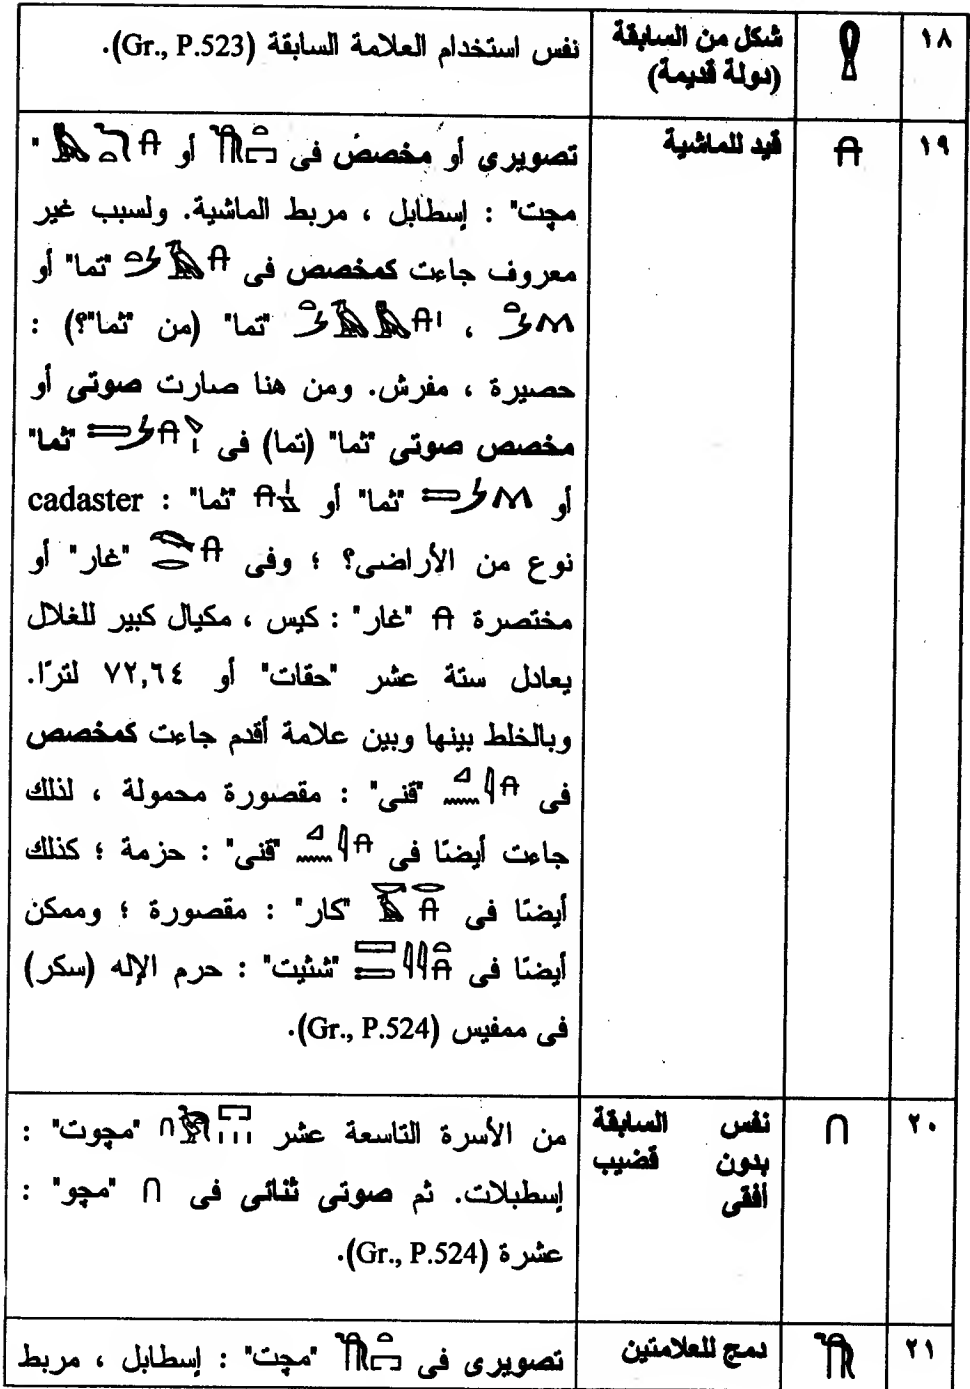 ١٨ 𓎃 شكل من السابقة نفس استخدام العلامة السابقة (Gr., P.523).
(دولة قديمة)
١٩ 𓎅 قيد للماشية تصويرى أو مخصص فى أو "
مچت" : إسطابل ، مربط الماشية. ولسبب غير
معروف جاءت كمخصص فى "تما" أو
، "تما" (من "ثما"؟) :
حصيرة ، مفرش. ومن هنا صارت صوتى أو
مخصص صوتى "ثما" (تما) فى "ثما"
أو "ثما" أو "ثما" : cadaster
نوع من الأراضى؟ ؛ وفى "غار" أو
مختصرة 𓎅 "غار" : كيس ، مكيال كبير للغلال
يعادل ستة عشر "حقات" أو ٧٢,٦٤ لترًا.
وبالخلط بينها وبين علامة أقدم جاءت كمخصص
فى "قنى" : مقصورة محمولة ، لذلك
جاءت أيضًا فى "قنى" : حزمة ؛ كذلك
أيضًا فى "كار" : مقصورة ؛ وممكن
أيضًا فى "شثيت" : حرم الإله (سكر)
فى ممفيس (Gr., P.524).
٢٠ 𓎆 نفس السابقة من الأسرة التاسعة عشر "مچوت" :
بدون قضيب إسطبلات. ثم صوتى ثنائى فى 𓎆 "مچو" :
أفقى عشرة (Gr., P.524).
٢١ دمج للعلامتين تصويرى فى "مچت" : إسطابل ، مربط